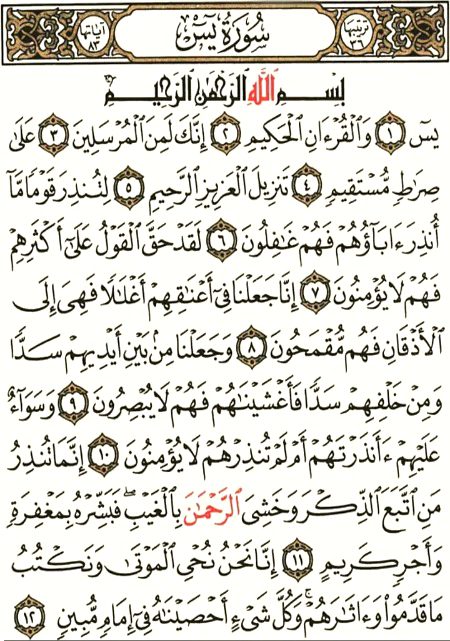 ترتيبها ٣٦ سُورَةُ يسٓ آياتها ٨٣
بِسْمِ اللَّهِ الرَّحْمَٰنِ الرَّحِيمِ
يسٓ ١ وَالْقُرْءَانِ الْحَكِيمِ ٢ إِنَّكَ لَمِنَ الْمُرْسَلِينَ ٣ عَلَىٰ
صِرَاطٍ مُّسْتَقِيمٍ ٤ تَنزِيلَ الْعَزِيزِ الرَّحِيمِ ٥ لِتُنذِرَ قَوْمًا مَّا
أُنذِرَ ءَابَآؤُهُمْ فَهُمْ غَٰفِلُونَ ٦ لَقَدْ حَقَّ الْقَوْلُ عَلَىٰٓ أَكْثَرِهِمْ
فَهُمْ لَا يُؤْمِنُونَ ٧ إِنَّا جَعَلْنَا فِىٓ أَعْنَٰقِهِمْ أَغْلَٰلًا فَهِىَ إِلَى
الْأَذْقَانِ فَهُم مُّقْمَحُونَ ٨ وَجَعَلْنَا مِنۢ بَيْنِ أَيْدِيهِمْ سَدًّا
وَمِنْ خَلْفِهِمْ سَدًّا فَأَغْشَيْنَٰهُمْ فَهُمْ لَا يُبْصِرُونَ ٩ وَسَوَآءٌ
عَلَيْهِمْ ءَأَنذَرْتَهُمْ أَمْ لَمْ تُنذِرْهُمْ لَا يُؤْمِنُونَ ١٠ إِنَّمَا تُنذِرُ
مَنِ اتَّبَعَ الذِّكْرَ وَخَشِىَ الرَّحْمَٰنَ بِالْغَيْبِ ۖ فَبَشِّرْهُ بِمَغْفِرَةٍ
وَأَجْرٍ كَرِيمٍ ١١ إِنَّا نَحْنُ نُحْىِ الْمَوْتَىٰ وَنَكْتُبُ
مَا قَدَّمُوا۟ وَءَاثَٰرَهُمْ ۚ وَكُلَّ شَىْءٍ أَحْصَيْنَٰهُ فِىٓ إِمَامٍ مُّبِينٍ ١٢